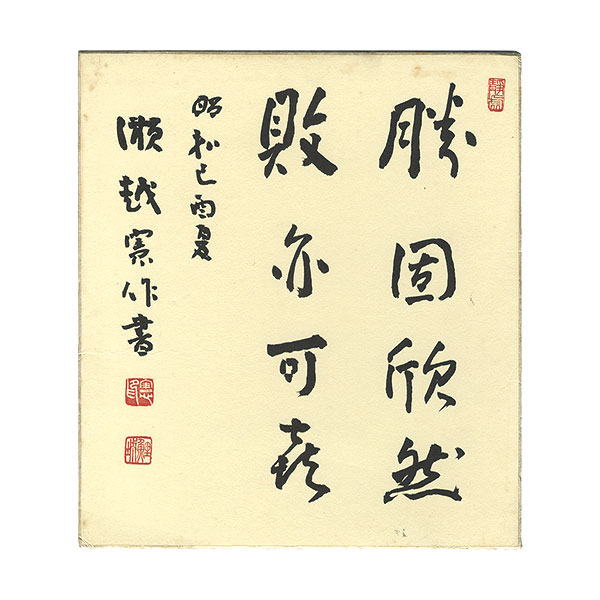 勝固欣然
敗亦可喜
昭和己酉夏
瀬越憲作書